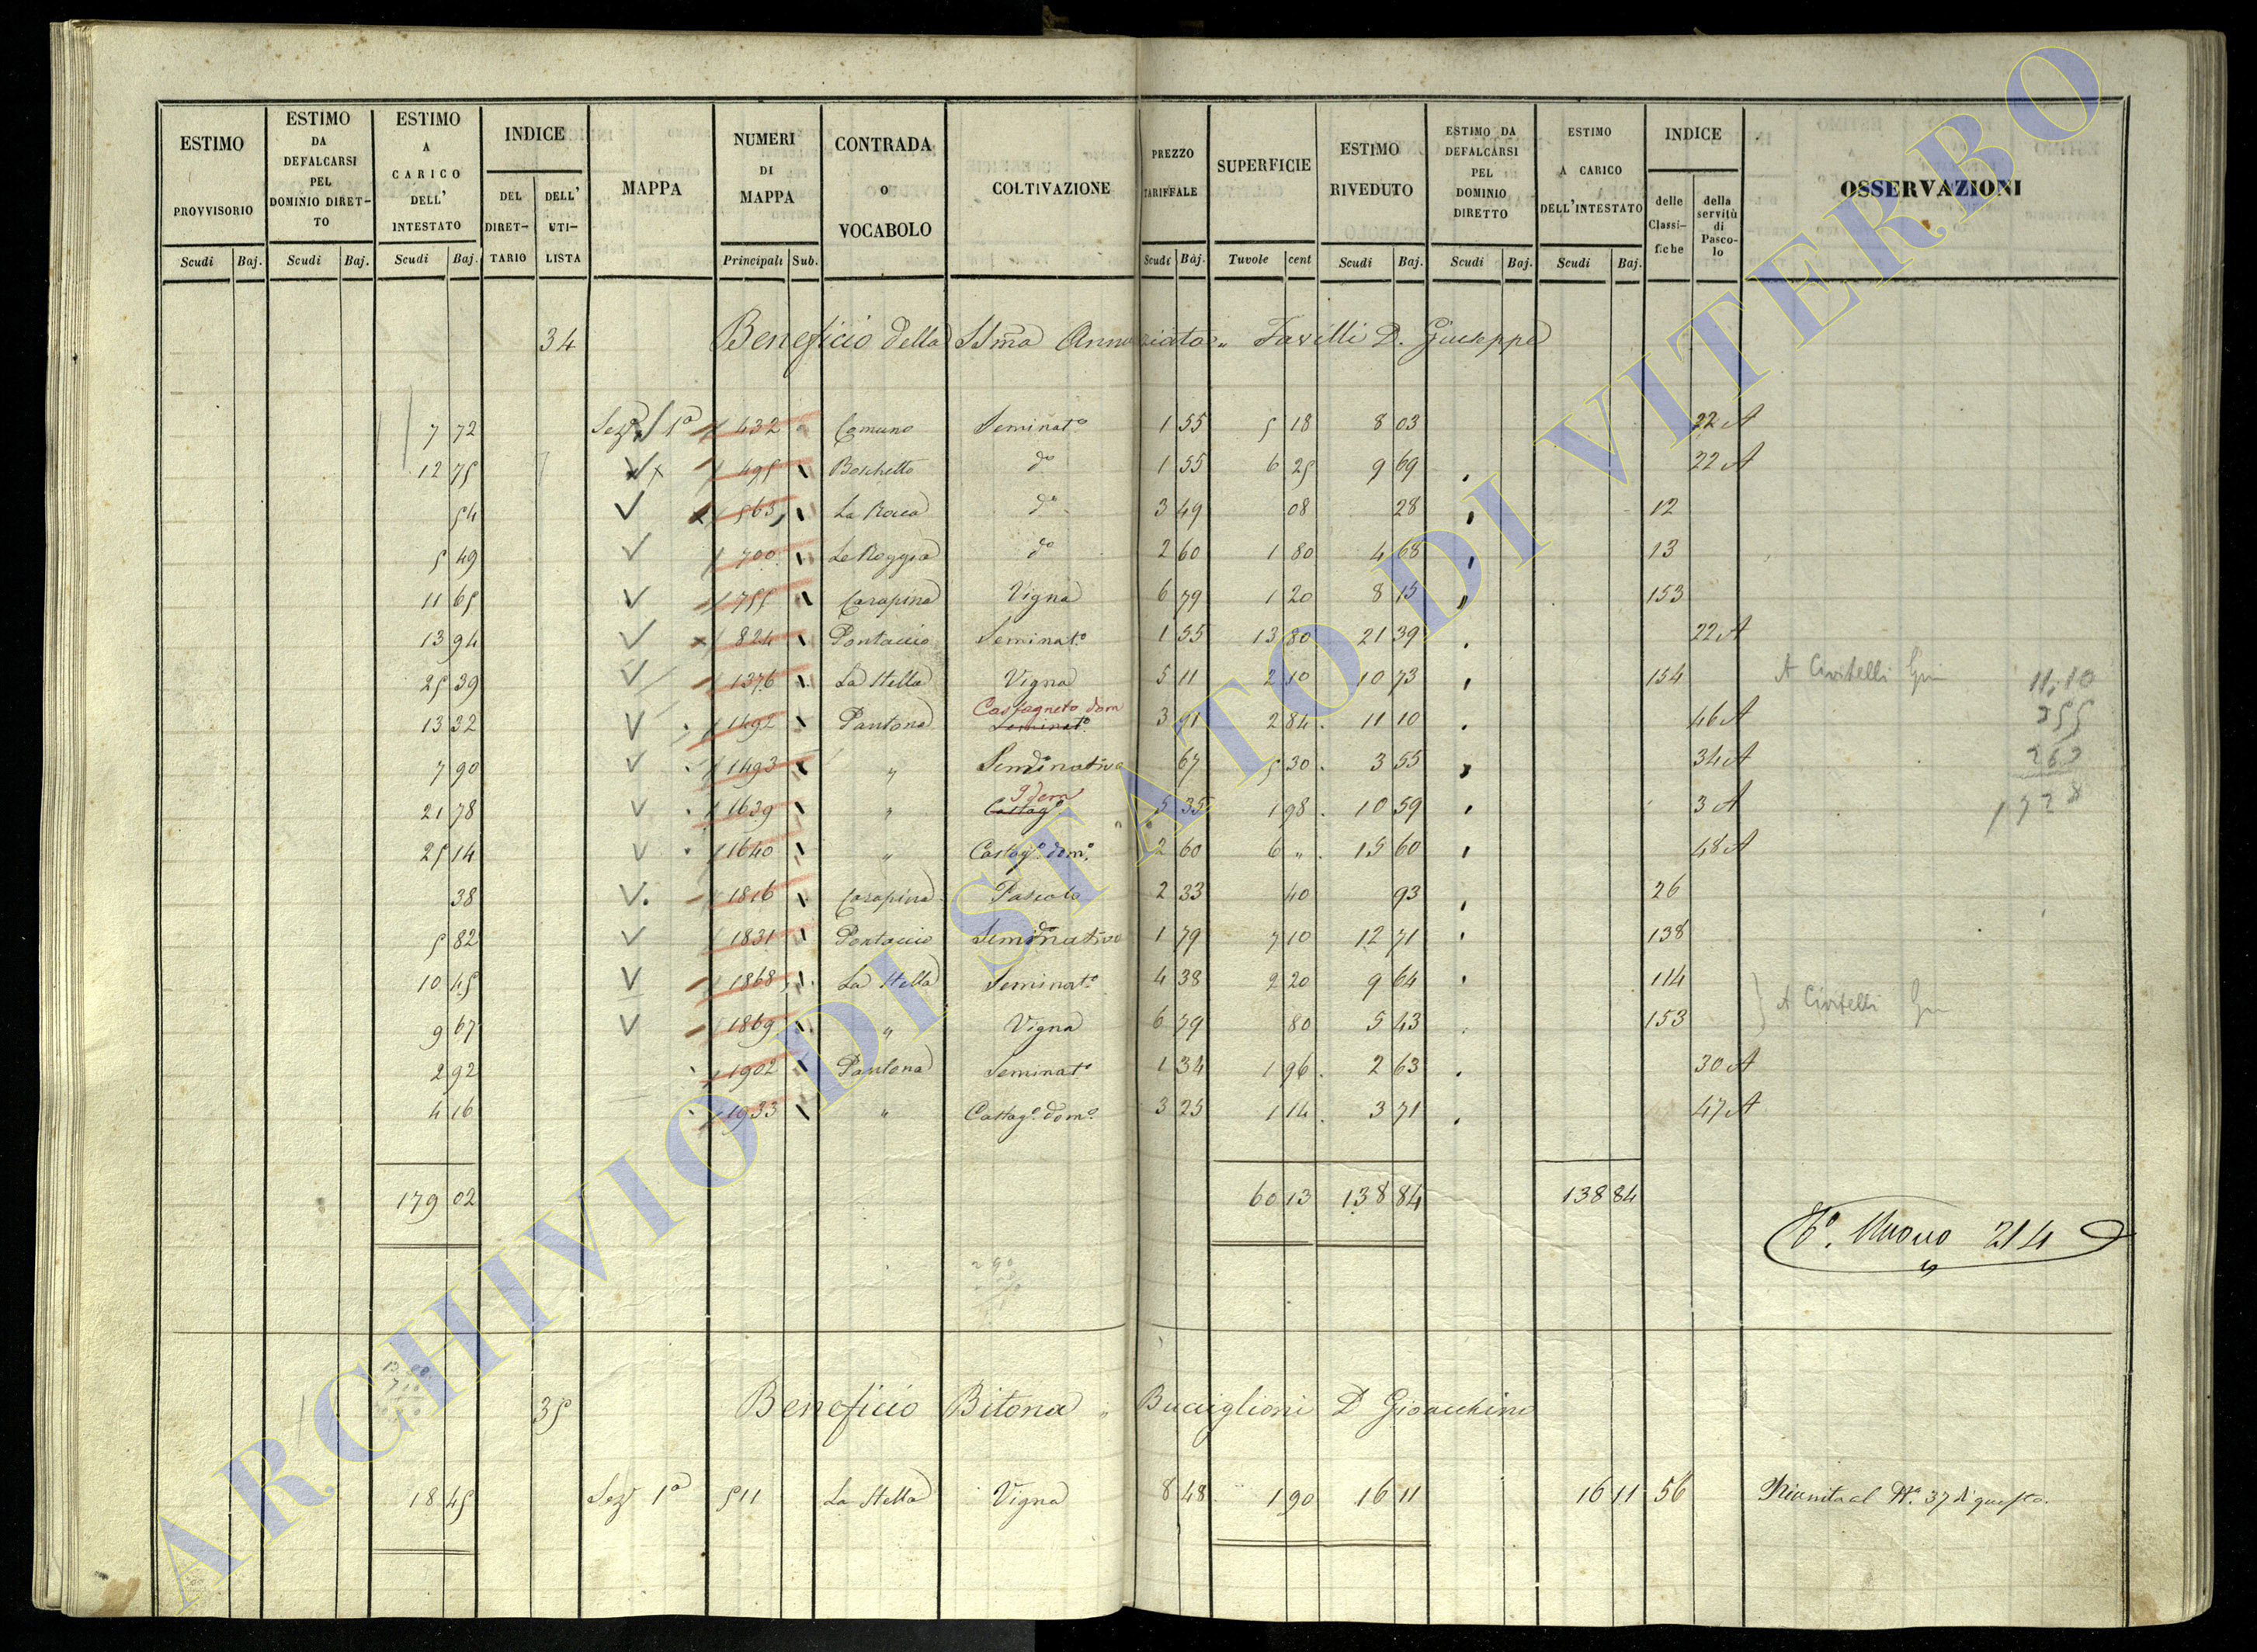 ESTIMO PROVVISORIO Scudi Baj.
ESTIMO DA DEFALCARSI PEL DOMINIO DIRET-TO Scudi Baj.
ESTIMO A CARICO DELL' INTESTATO Scudi Baj.
INDICE DEL DIRET-TARIO DELL' UTI-LISTA
MAPPA
NUMERI DI MAPPA Principali Sub.
CONTRADA o VOCABOLO
COLTIVAZIONE
PREZZO TARIFFALE Scudi Baj.
SUPERFICIE Tavole cent
ESTIMO RIVEDUTO Scudi Baj.
ESTIMO DA DEFALCARSI PEL DOMINIO DIRETTO Scudi Baj.
ESTIMO A CARICO DELL'INTESTATO Scudi Baj.
INDICE delle Classi-fiche della servitù di Pasco-lo
OSSERVAZIONI
34 Beneficio della SSma Annunziata „ Favilli D. Giuseppe
7 72 Sezne 1a 432 Comune Seminato 1 55 5 18 8 03 22 A
12 75 495 Boschetto do 1 55 6 25 9 69 22 A
54 563 La Rocca do 3 49 08 28 12
5 49 700 Le Roggia do 2 60 1 80 4 68 13
11 65 755 Carapina Vigna 6 79 1 20 8 15 153
13 94 824 Pontaccio Seminato 1 55 13 80 21 39 22 A
25 39 1376 La Stella Vigna 5 11 2 10 10 73 154 A Civitelli Giu 11,10
13 32 1492 Pantona Castagneto dom Seminato 3 91 2 84 11 10 46 A 355
7 90 1493 „ Seminativo do 67 5 30 3 55 34 A 263
21 78 1639 „ Idem Castago 5 35 1 98 10 59 3 A 1728
25 14 1640 „ Castago domo 2 60 6 „ 15 60 48 A
38 1816 Carapina Pascolo 2 33 40 93 26
5 82 1831 Pontaccio Seminativo do 1 79 7 10 12 71 138
10 45 1868 La Stella Seminato 4 38 2 20 9 64 114
A Civitelli Giu
9 67 1869 „ Vigna 6 79 80 5 43 153
2 92 1902 Pantona Seminato 1 34 1 96 2 63 30 A
4 16 1933 „ Castago domo 3 25 1 14 3 71 47 A
179 02 60 13 138 84 138 84
No. Nuovo 214
35 Beneficio Bitona „ Bucciglioni D Gioacchino
18 45 Sezne 1a 511 La Stella Vigna 8 48 1 90 16 11 16 11 56 Riunita al No. 37 di questo.
ARCHIVIO DI STATO DI VITERBO